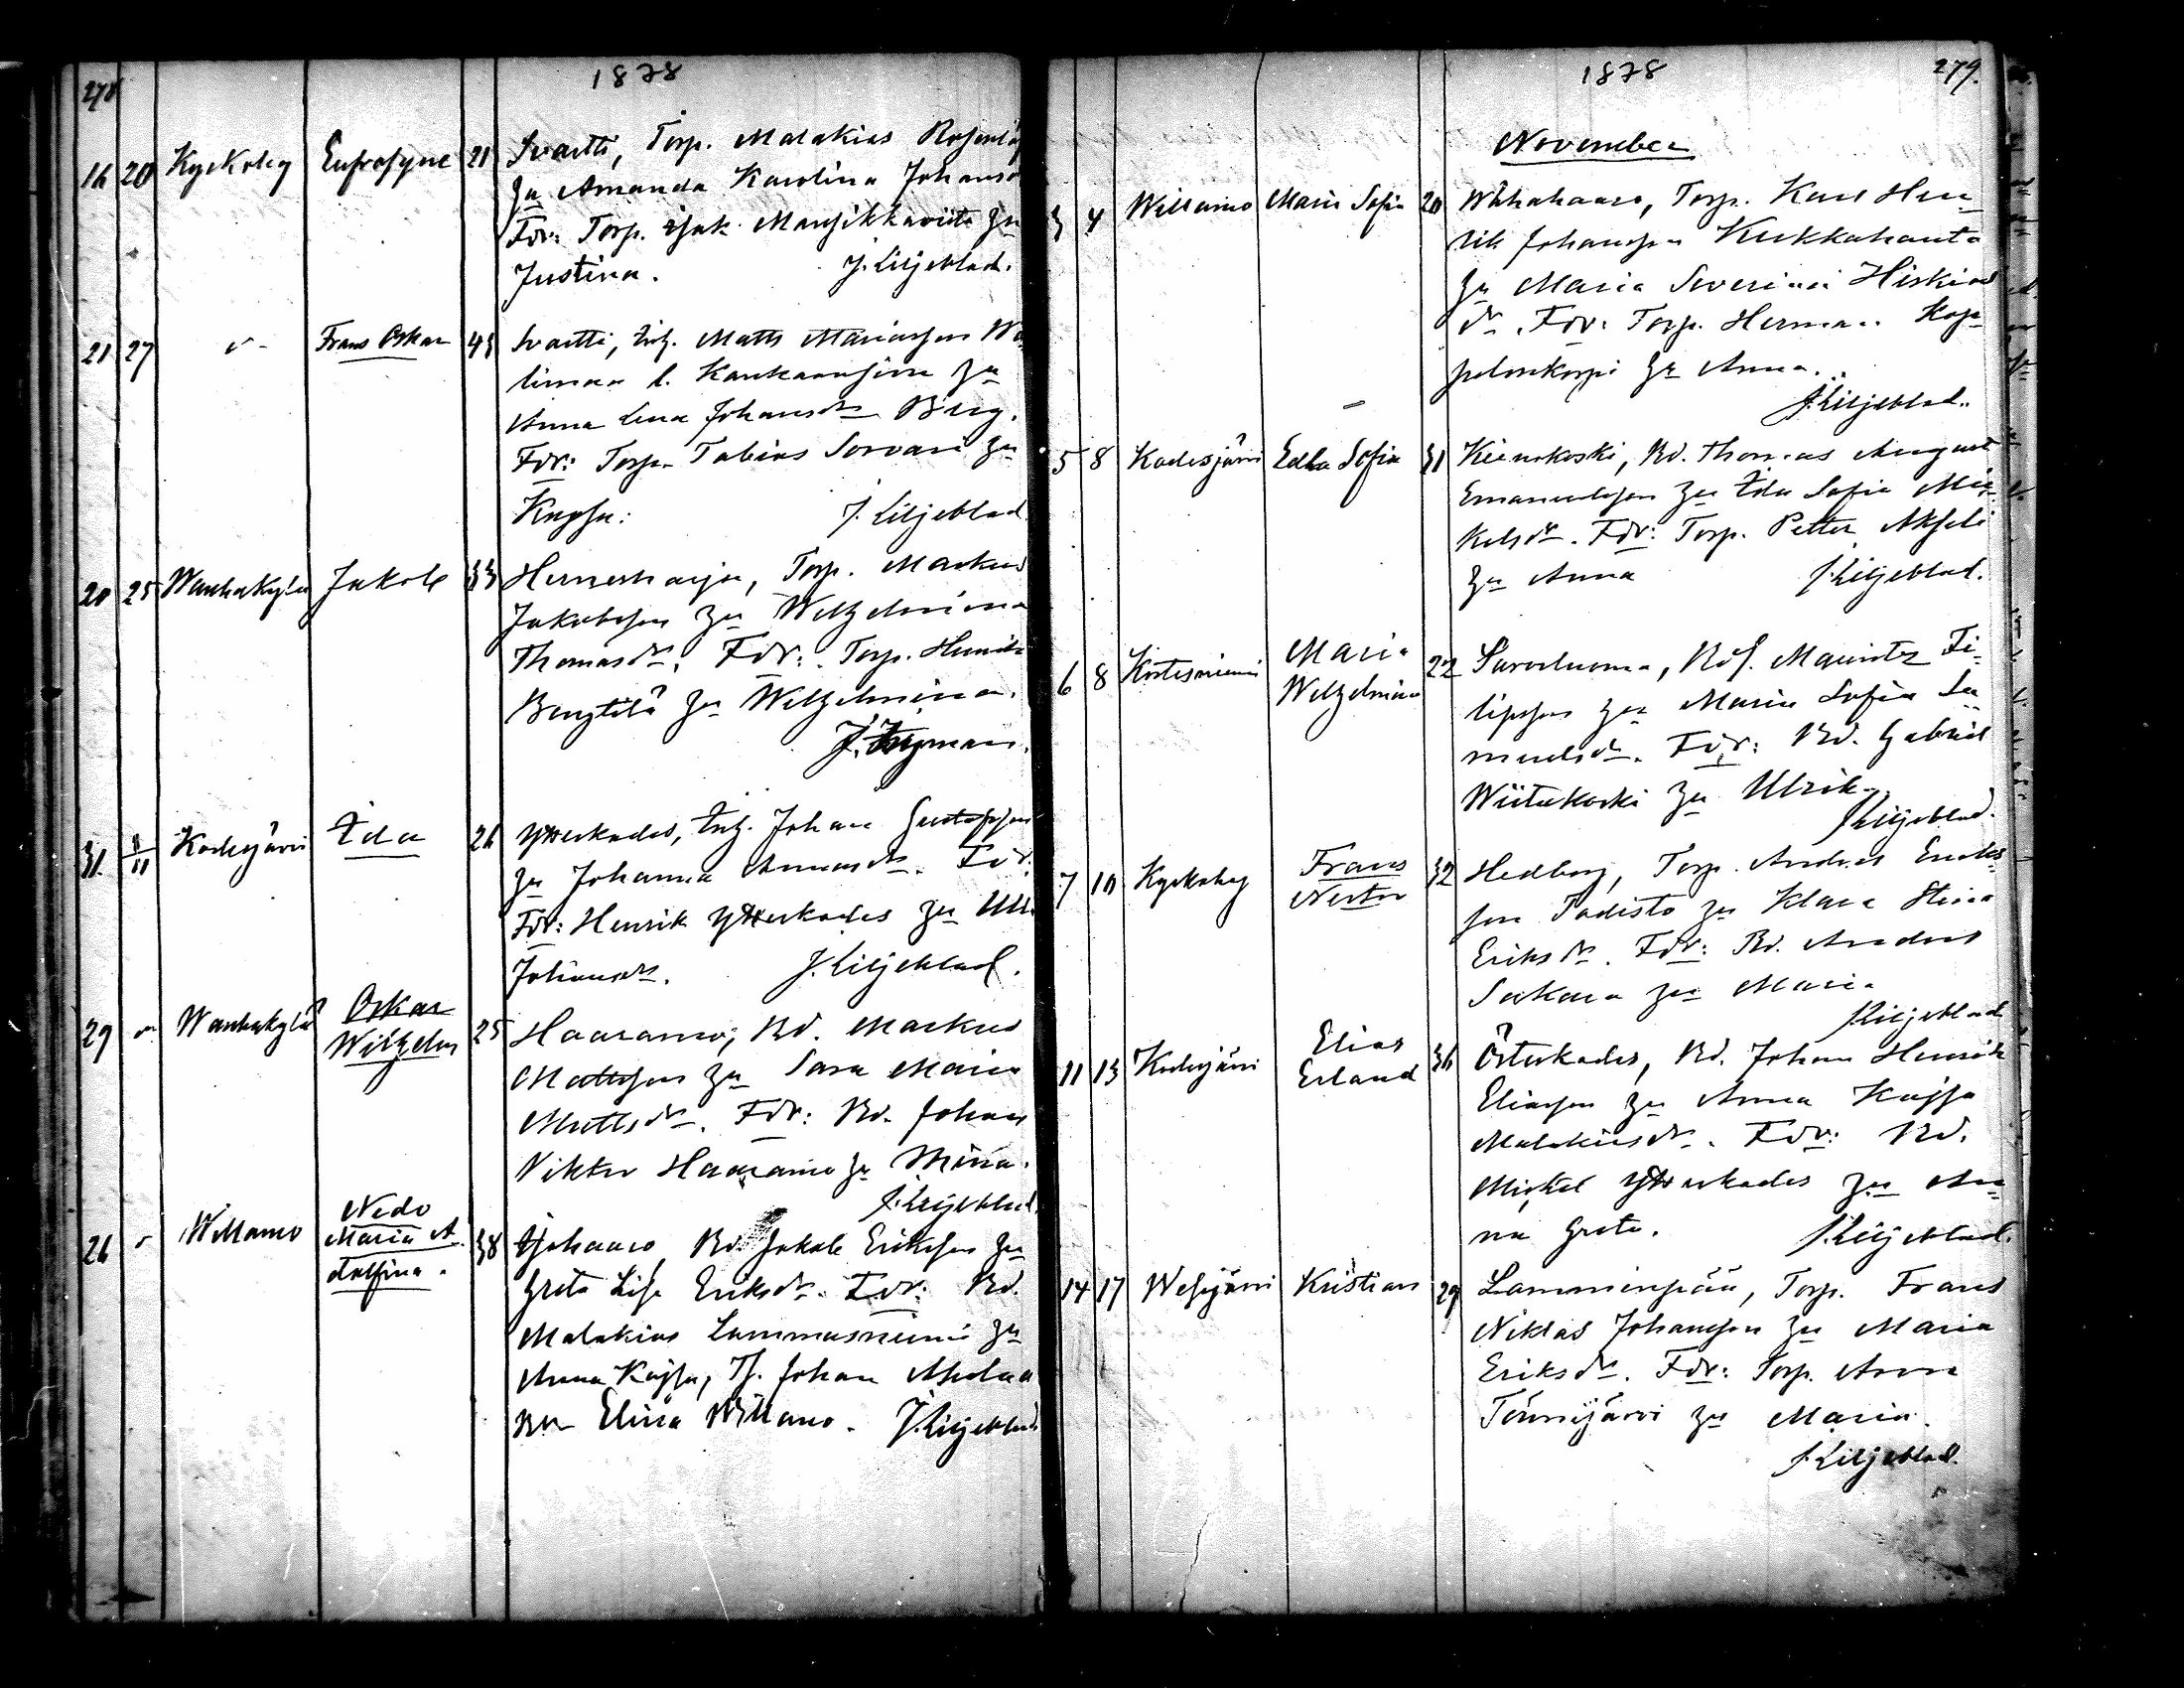 278
1878
16 20 Kyrkoby Eufrosyne 21 Svartti, Torp. Malakias
hu Amanda Karolina Johans
Fdr: Torp. Isak Mansikkaviita hu
Justina. J. Liljeblad.
21 27 Frans Oskar 43 Svartti, Inh. Matts
l. hu
Anna Lena Johansdr Berg.
Fdr: Torp. Tobias Sorvari hu
Kaysa: J. Liljeblad
20 25 Wanhakylä Jakob 33 Torp. Markus
Jakobsson hu Wilhelmina
Thomasdr. Fdr: Torp.
hu Wilhelmina.
31 1/11 Kadesjärvi Ida 26 Ytterkades, Inh. Johan Gustafsson
hu Johanna Fdr:
Fdr: Henrik Ytterkades hu
Johansdr. J. Liljeblad.
29 Wanhakylä Oskar
Wilhelm
25 Haaramo, Bd. Markus
Mattsson hu Sara Maria
Mattsdr. Fdr: Bd. Johan
Viktor Haaramo hu Mina.
J. Liljeblad.
26 Willamo Nedo
Maria A
dolfina.
38 Bd. Jakob Eriksson hu
Greta Lisa Eriksdr. Fdr: Bd.
Malakias Lammasniemi hu
Anna Kajsa, Johan
Elisa Willamo. J. Liljeblad
1878
279.
November
3 4 Willamo Maria Sofia 20 Wähähaaro, Torp. Karl Hen
rik Johansson Kukkahanta
hu Maria Severina Hiskias
dr. Fdr: Torp. Herman Kop
pelonkorpi hu Anna.
J. Liljeblad.
5 8 Kadesjärvi Edla Sofia 31 Bd. Thomas August
Emanuelsson hu Ida Sofia Mi
kelsdr. Fdr: Torp. Petter Akseli
hu Anna J. Liljeblad.
6 8 Koskesniemi Maria
Wilhelmina
22 Savoluoma, Bds. Mauritz Fi
lipsson hu Maria Sofia Sa
muelsdr. Fdr: Bd. Gabriel
Wiitakoski hu Ulrika.
J. Liljeblad.
7 10 Kyrkoby Frans
Nestor
32 Hedberg, Torp. Andreas Eriks
son Todisto hu Klara Stina
Eriksdr. Fdr: Bd. Andreas
hu Maria
J. Liljeblad
11 13 Kadesjärvi Elias
Erland
36 Österkades, Bd. Johan Henrik
Eliasson hu Anna Kajsa
Malakiasdr. Fdr: Bd.
Mickel Ytterkades hu An
na Greta. J. Liljeblad.
14 17 Wesijärvi Kristian 29 Lamminpää, Torp. Frans
Niklas Johansson hu Maria
Eriksdr. Fdr: Torp.
Törnijärvi hu Maria.
J. Liljeblad.